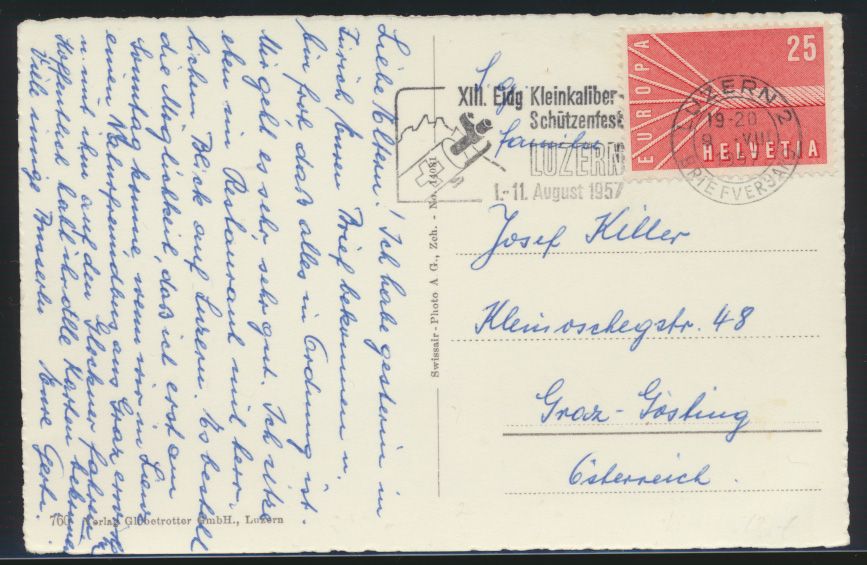 Liebe Eltern! Ich habe gestern in
Zürich Euren Brief bekommen u.
bin froh daß alles in Ordnung ist.
Mir geht es sehr sehr gut. Ich sitze
eben im Restaurant mit herr-
lichem Blick auf Luzern. Es besteht
die Möglichkeit, daß ich erst am
Sonntag komme, wenn wir in Lienz
einen Naturfreundbus aus Graz
u. mit ihm auf den Glockner fahren.
Hoffentlich habt ihr alle Karten bekommen
Viele innige Busserln Eure Gerti.
760 Verlag Globetrotter GmbH., Luzern
Swissair-Photo A G., Zch. - No. 14081
XIII. Eidg Kleinkaliber-
Schützenfest
LUZERN
1.-11. August 1957
EUROPA
25
HELVETIA
LUZERN 2
19-20
VIII
BRIEFVERSAND
Familie
Josef Killer
Kleinoschegstr. 48
Graz-Gösting
Österreich.